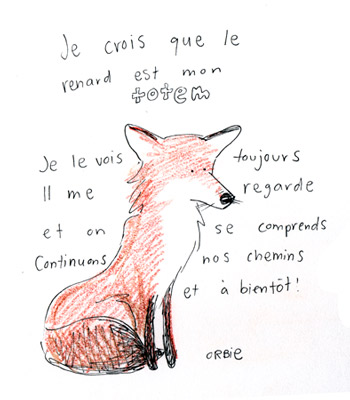 Je crois que le
renard est mon
totem
Je le vois toujours
Il me regarde
et on se comprends
Continuons nos chemins
et à bientôt!
ORBiE